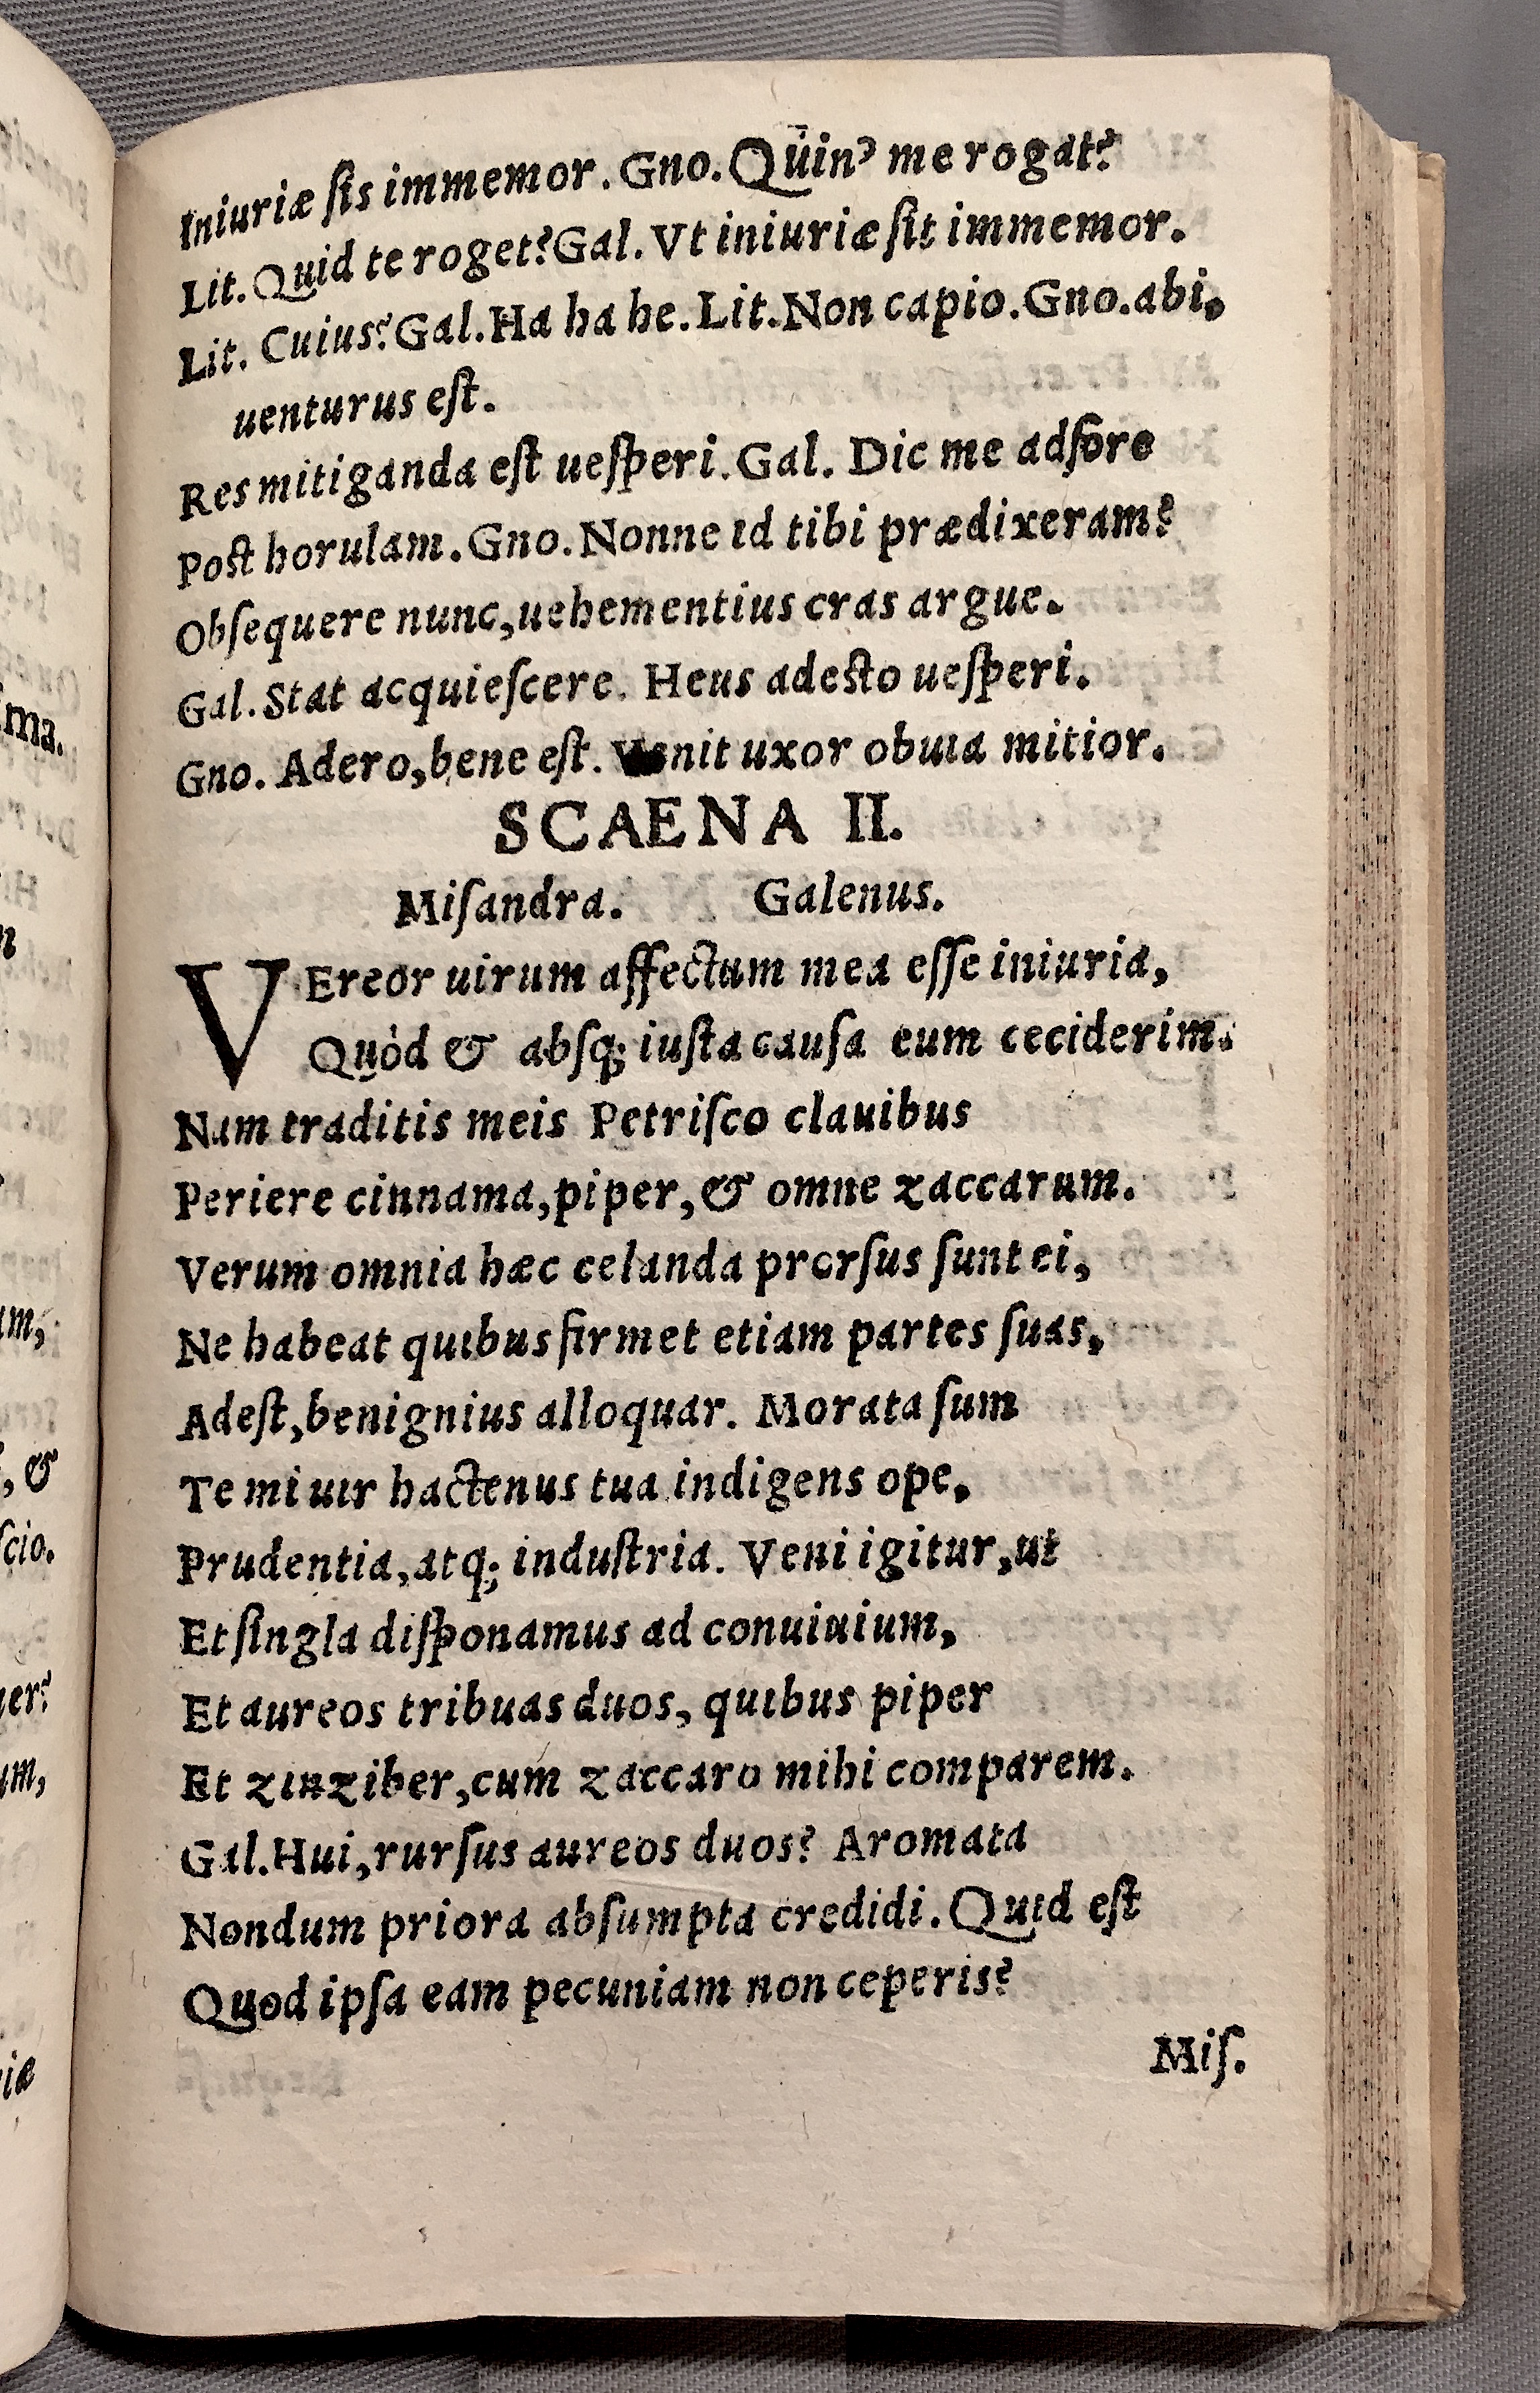 Iniuriæ ſis immemor. Gno. Quin' me rogat?
Lit. Quid te roget? Gal. Vt iniuriæ ſit immemor.
Lit. Cuius? Gal. Ha ha he. Lit. Non capio. Gno. abi,
uenturus eſt.
Res mitiganda eſt ueſperi. Gal. Dic me adfore
Poſt horulam. Gno. Nonne id tibi prædixeram?
Obſequere nunc, uehementius cras argue.
Gal. Stat acquieſcere. Heus adeſto ueſperi.
Gno. Adero, bene eſt. Venit uxor obuia mitior.
SCAENA II.
Miſandra. Galenus.
VEreor uirum affectum mea eſſe iniuria,
Quòd & abſq; iuſta cauſa eum ceciderim.
Nam traditis meis Petriſco clauibus
Periere cinnama, piper, & omne zaccarum.
Verum omnia hæc celanda prorſus ſunt ei,
Ne habeat quibus firmet etiam partes ſuas,
Adeſt, benignius alloquar. Morata ſum
Te mi uir hactenus tua indigens ope,
Prudentia, atq; induſtria. Veni igitur, ut
Et ſingla diſponamus ad conuiuium,
Et aureos tribuas duos, quibus piper
Et zinziber, cum zaccaro mihi comparem.
Gal. Hui, rurſus aureos duos? Aromata
Nondum priora abſumpta credidi. Quid eſt
Quod ipſa eam pecuniam non ceperis?
Miſ.
ma.
n
um,
, &
ſcio.
ger?
um,
iæ